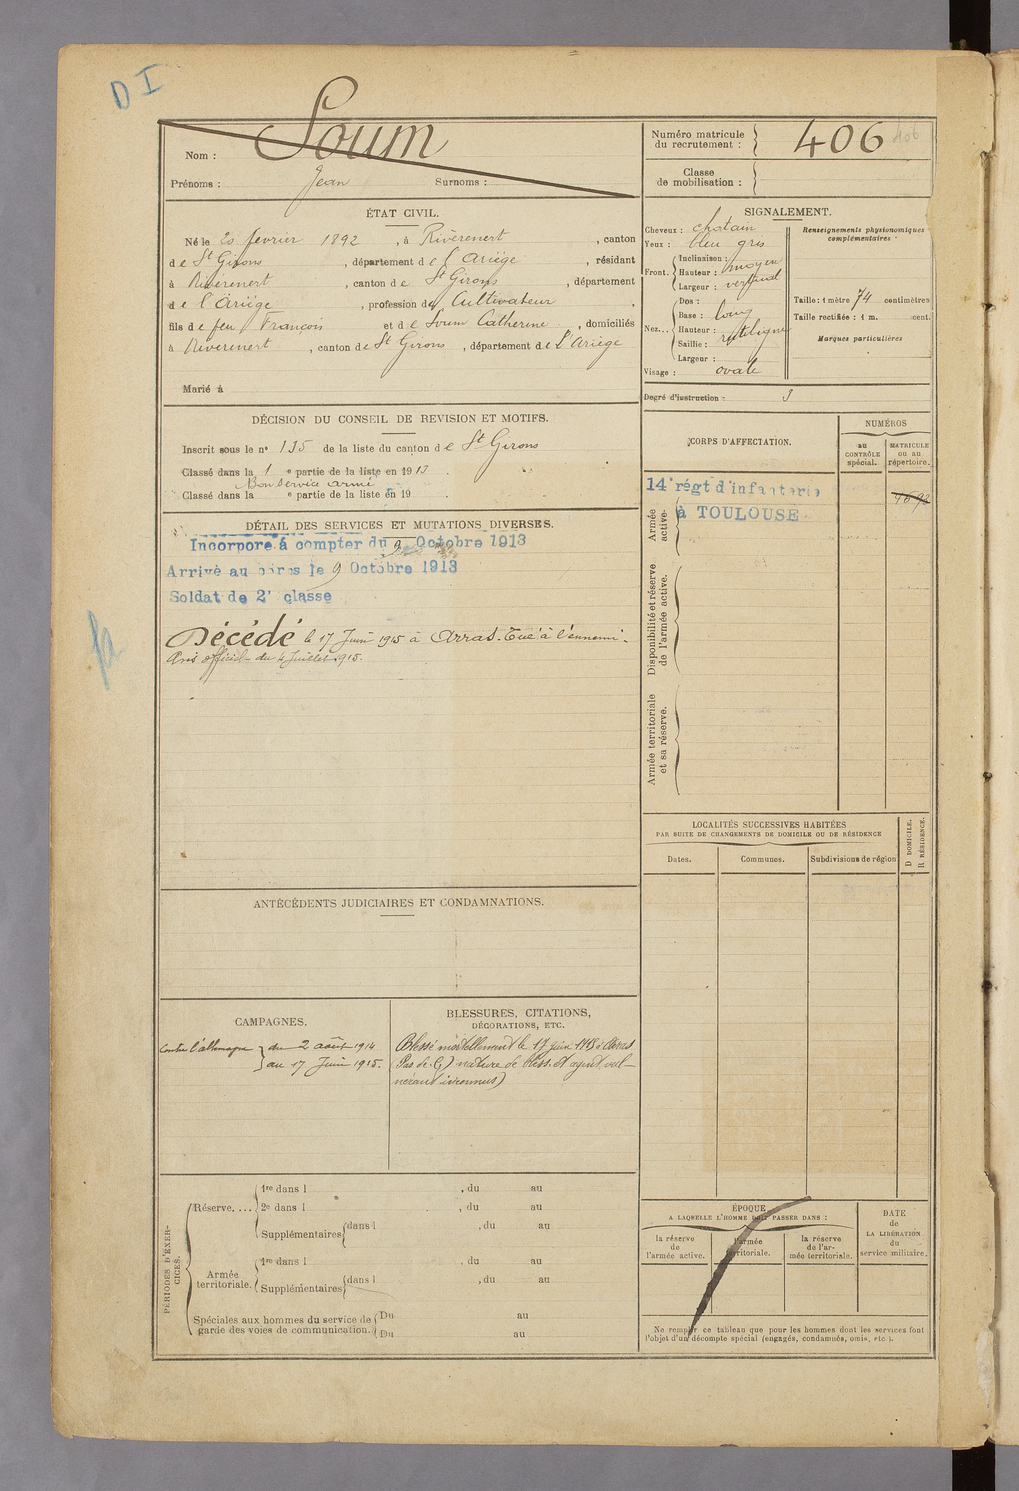 D I
Soum
Nom :
Prénoms : Jean Surnoms :
Numéro matricule
du recrutement : 406 406
Classe
de mobilisation :
ÉTAT CIVIL.
Né le 20 février 1892, à Rivèrenert, canton
de St Girons, département de l'Ariège, résidant
à Rivèrenert, canton de St Girons, département
de l'Ariège, profession de Cultivateur,
fils de feu François et de Soum Catherine, domiciliés
à Rivèrenert, canton de St Girons, département de l'Ariège
Marié à
SIGNALEMENT.
Cheveux : chatain
Yeux : bleu gris
Front.
Inclinaison :
Hauteur : moyen
Largeur : vertical
Nez...
Dos :
Base : long
Hauteur : rectiligne
Saillie :
Largeur :
Visage : ovale
Renseignements physionomiques
complémentaires :
Taille : 1 mètre 74 centimètres
Taille rectifiée : 1 m. cent.
Marques particulières
Degré d'instruction : 3
DÉCISION DU CONSEIL DE REVISION ET MOTIFS.
Inscrit sous le n° 135 de la liste du canton de St Girons
Classé dans la 1 e partie de la liste en 1913.
Bon service armé
Classé dans la e partie de la liste en 19
CORPS D'AFFECTATION.
NUMÉROS
au
CONTRÔLE
spécial.
MATRICULE
ou au
répertoire.
Armée
active.
14e régt d'infanterie
à TOULOUSE
Disponibilité et réserve
de l'armée active.
Armée territoriale
et sa réserve.
DÉTAIL DES SERVICES ET MUTATIONS DIVERSES.
Incorporé à compter du 9 Octobre 1913
Arrivé au corps le 9 Octobre 1913
Soldat de 2e classe
Décédé le 17 Juin 1915 à Arras. Tué à l'ennemi.
Avis officiel du 4 Juillet 1915.
LOCALITÉS SUCCESSIVES HABITÉES
PAR SUITE DE CHANGEMENTS DE DOMICILE OU DE RÉSIDENCE
Dates.
Communes.
Subdivisions de région
D DOMICILE.
R RÉSIDENCE.
ANTÉCÉDENTS JUDICIAIRES ET CONDAMNATIONS.
CAMPAGNES.
Contre l'allemagne du 2 août 1914
au 17 Juin 1915.
BLESSURES, CITATIONS,
DÉCORATIONS, ETC.
Blessé mortellement le 17 juin 1915 à Arras
(Pas de C.) nature de bless. et agent vul-
nérant inconnus)
PÉRIODES D'EXER-
CICES.
Réserve....
1re dans l , du au
2e dans l , du au
Supplémentaires dans l , du au
Armée
territoriale.
1re dans l , du au
Supplémentaires dans l , du au
Spéciales aux hommes du service de
garde des voies de communication.
Du au
Du au
ÉPOQUE
A LAQUELLE L'HOMME DOIT PASSER DANS :
la réserve
de
l'armée active.
l'armée
territoriale.
la réserve
de l'ar-
mée territoriale.
DATE
de
LA LIBÉRATION
du
service militaire.
Ne remplir ce tableau que pour les hommes dont les services font
l'objet d'un décompte spécial (engagés, condamnés, omis, etc.).